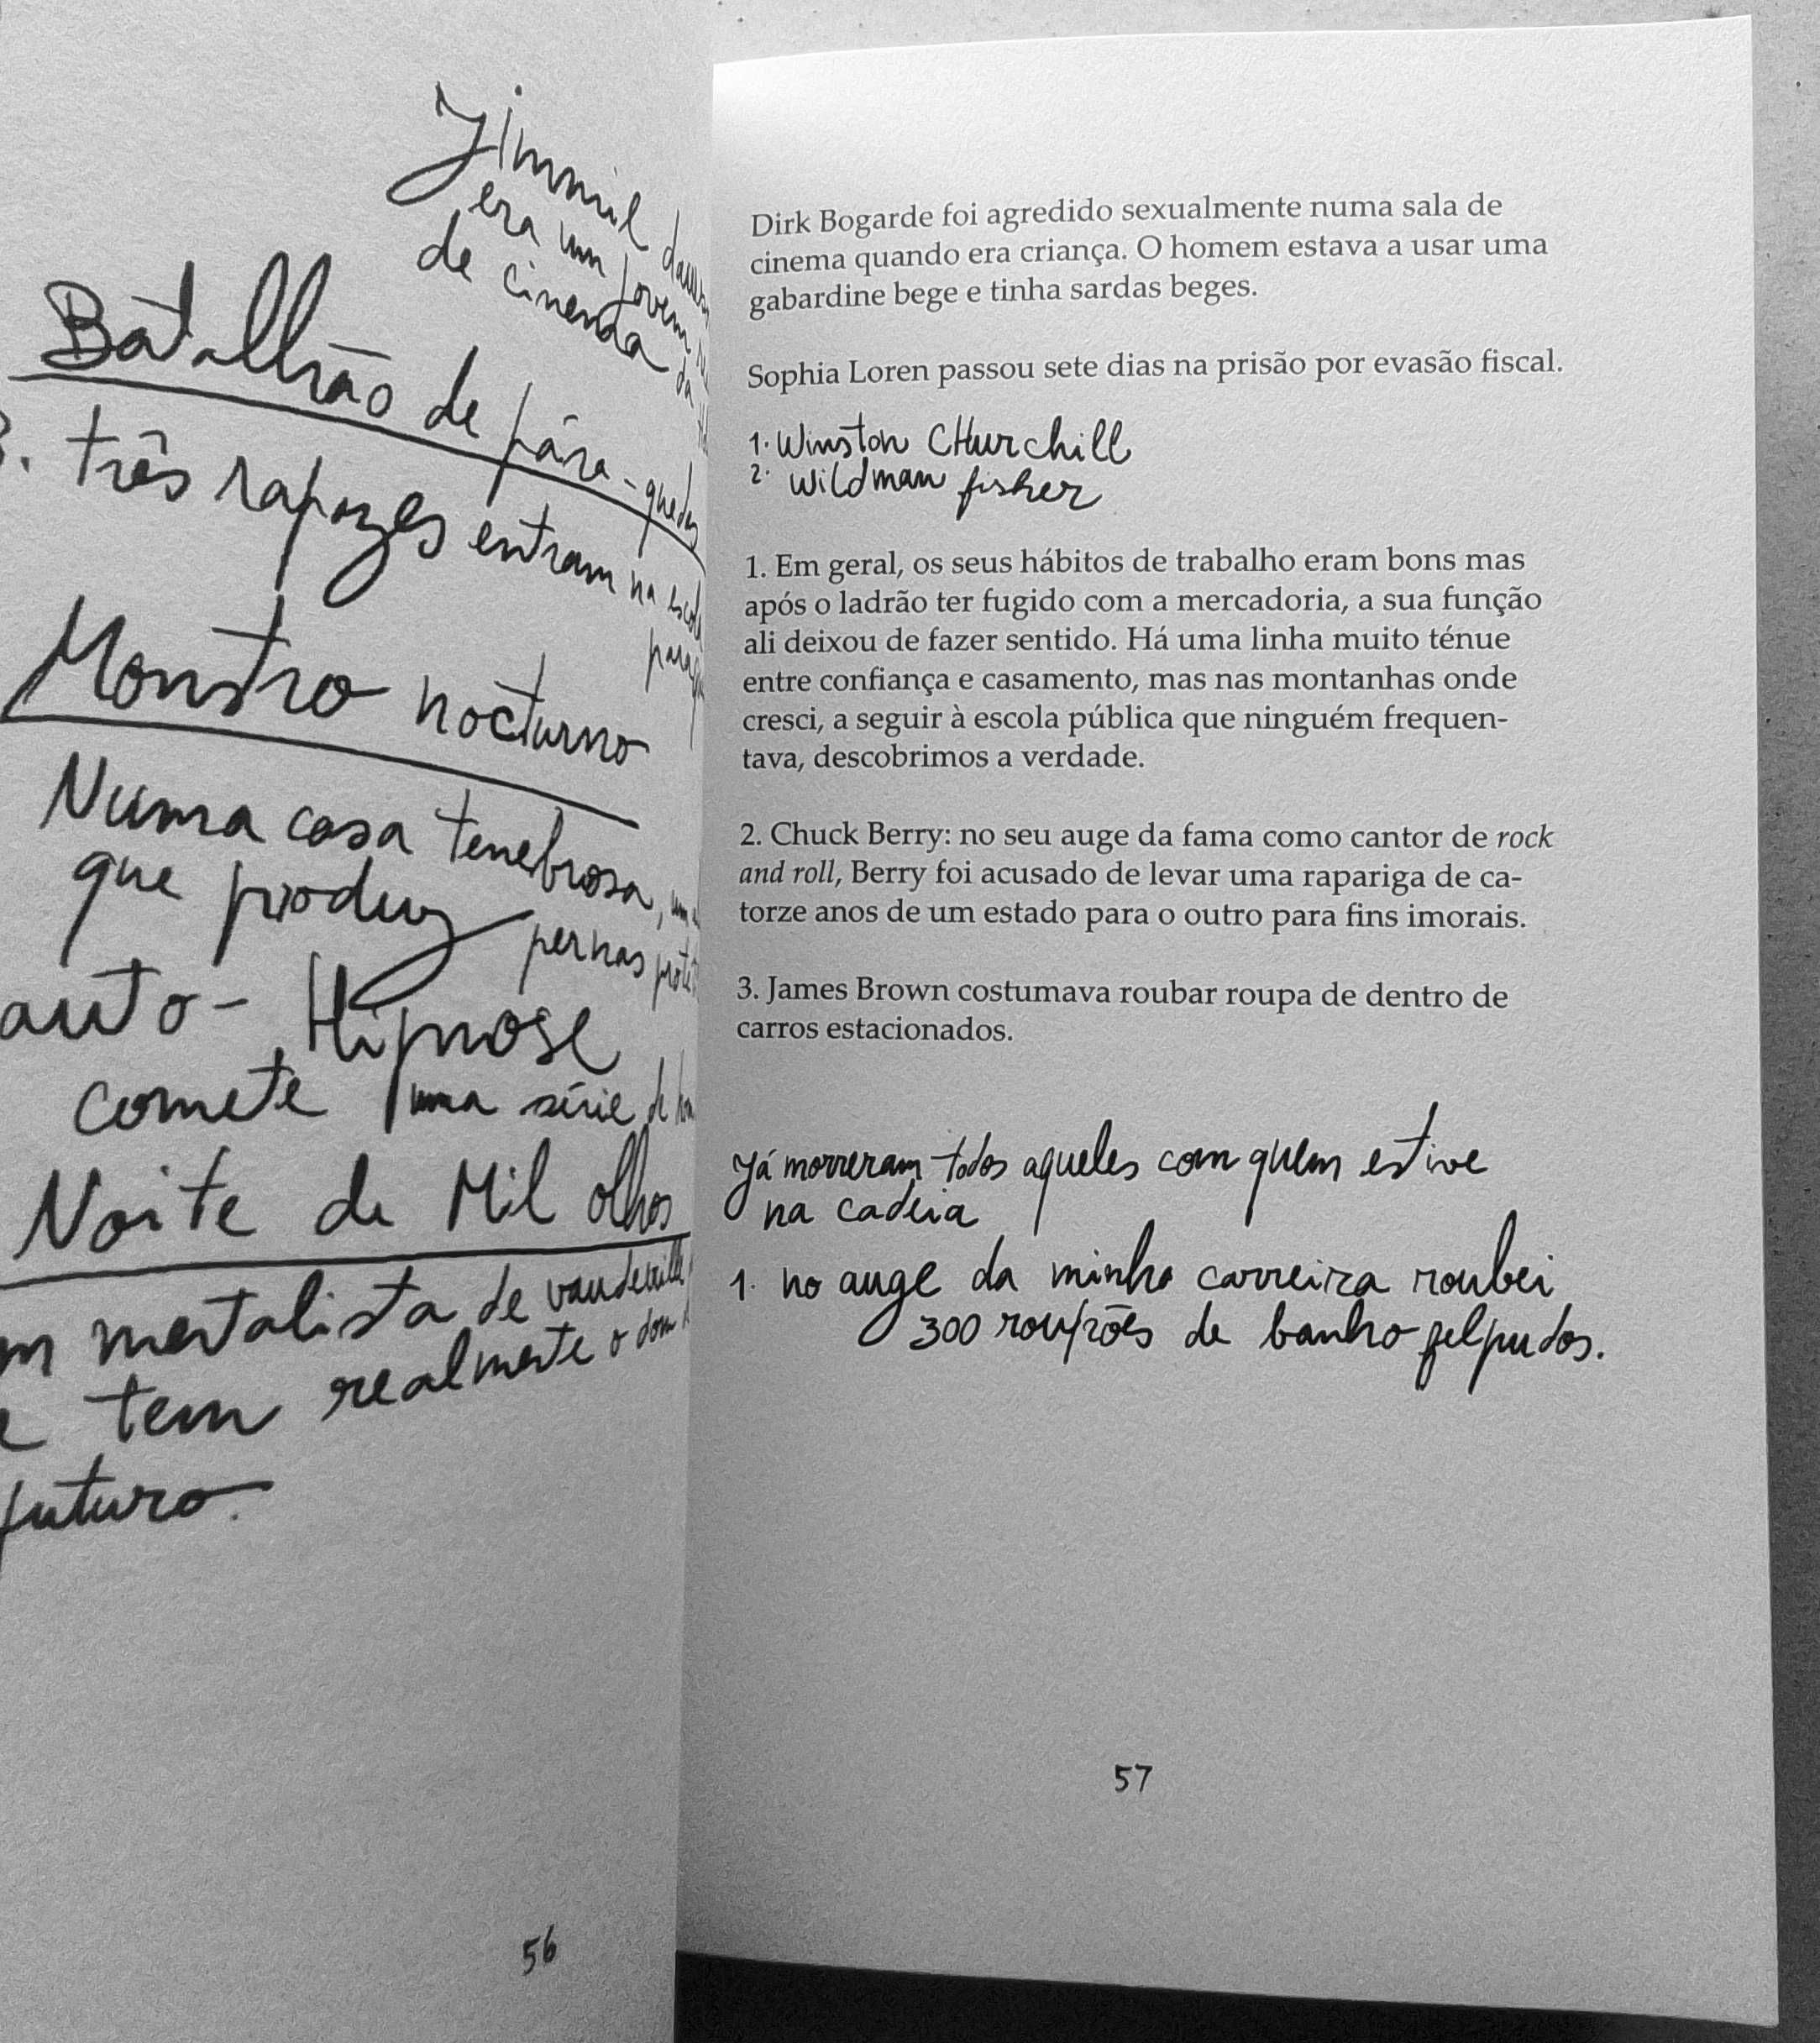 Jimmie
era um jovem
de cinema da
Batalhão de pára-quedas
três rapazes entram na
Monstro nocturno
Numa casa tenebrosa,
que produz pernas
auto-Hipnose
comete uma série de
Noite de Mil olhos
mentalista de vaudeville
tem realmente o dom
futuro.
56
Dirk Bogarde foi agredido sexualmente numa sala de
cinema quando era criança. O homem estava a usar uma
gabardine bege e tinha sardas beges.
Sophia Loren passou sete dias na prisão por evasão fiscal.
1. Winston CHurchill
2. Wildman fisher
1. Em geral, os seus hábitos de trabalho eram bons mas
após o ladrão ter fugido com a mercadoria, a sua função
ali deixou de fazer sentido. Há uma linha muito ténue
entre confiança e casamento, mas nas montanhas onde
cresci, a seguir à escola pública que ninguém frequen-
tava, descobrimos a verdade.
2. Chuck Berry: no seu auge da fama como cantor de rock
and roll, Berry foi acusado de levar uma rapariga de ca-
torze anos de um estado para o outro para fins imorais.
3. James Brown costumava roubar roupa de dentro de
carros estacionados.
Já morreram todos aqueles com quem estive
na cadeia
1. no auge da minha carreira roubei
300 roupões de banho felpudos.
57